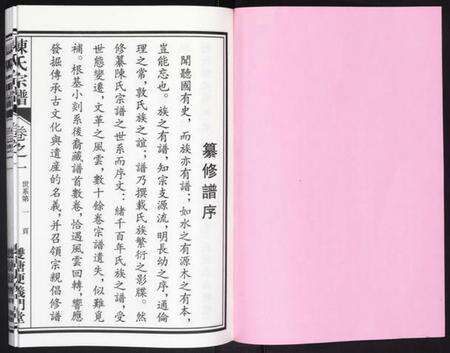 纂修譜序
聞聽國有史，而族亦有譜；如水之有源木之有本，
豈能忘也。族之有譜，知宗支源流，明長幼之序，通倫
理之常，敦氏族之誼；譜乃撰載氏族繁衍之影牒。然
修纂陳氏宗譜之世系而序文：緒千百年氏族之譜，受
世態變遷，文革之風雲，數十餘卷宗譜遺失，似難覓
補。根基小刻系後裔藏譜首數卷，恰遇風雲回轉，響應
發掘傳承古文化與遺産的名義，并召領宗親倡修譜
陳氏宗譜
卷之一
世系第一頁
義門堂